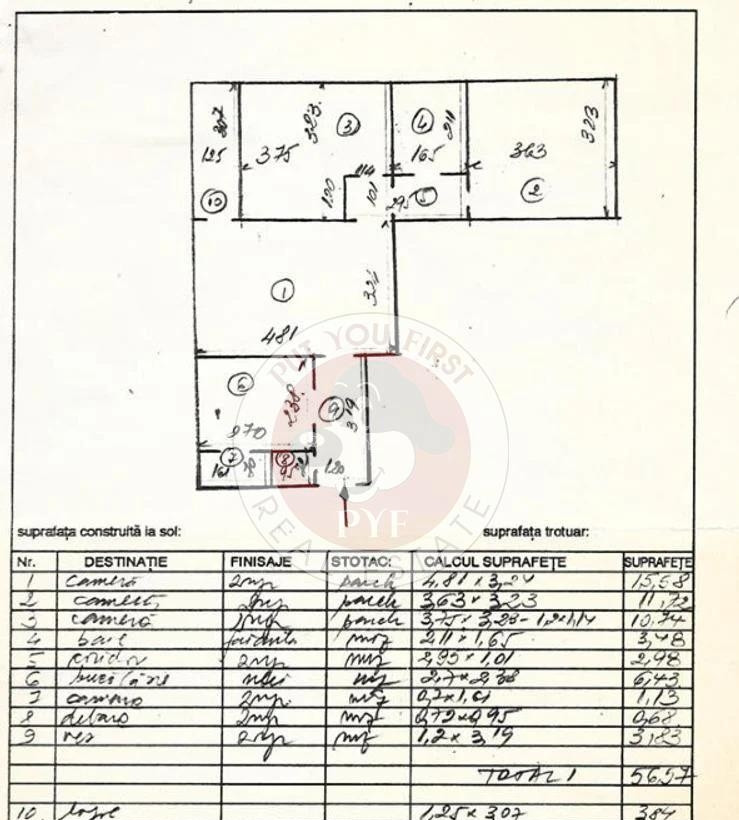 307 323. 3 4 211 323
125 375 165 363
114
10 120 101 295 5 2
1 321
481
6 238. 9 3,19
270
7 8
161 95 120
PUT YOU FIRST
PYF
REAL ESTATE
suprafața construită la sol: suprafața trotuar:
Nr. DESTINAȚIE FINISAJE STOTAC: CALCUL SUPRAFEȚE SUPRAFEȚE
1 camera parch 4,81 x 3,24 15,58
2 camera parch 3,63 x 3,23 11,72
3 camera parch 3,75 x 3,23 - 1,2x1,14 10,74
4 baie faianta moz 2,11 x 1,65 3,48
5 coridor moz 2,95 x 1,01 2,98
6 bucătărie 2,7 x 2,38 6,43
7 camara moz 0,7 x 1,61 1,13
8 debara moz 0,72 x 0,95 0,68
9 moz 1,2 x 3,19 3,83
TOTAL 1 56,57
10 1,25 x 3,07 3,84